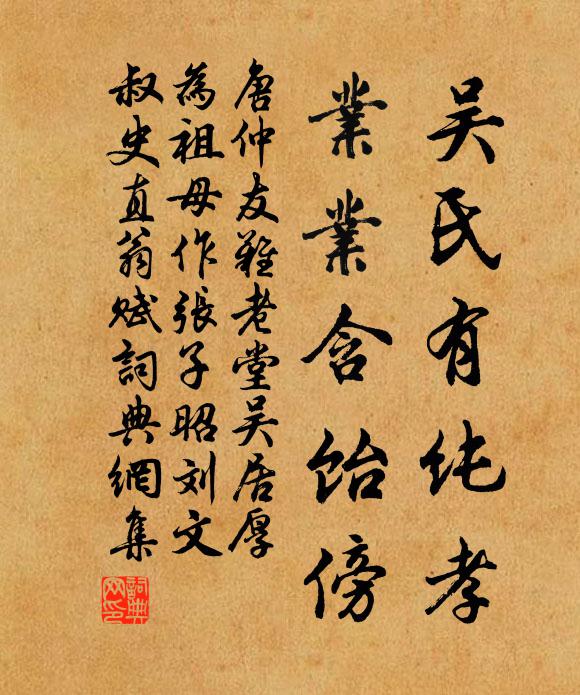 吴氏有纯孝
業業含飴傍
唐仲友難老堂吴居厚
為祖母作張子昭刘文
叔史直翁赋詞典網集
詞典網印